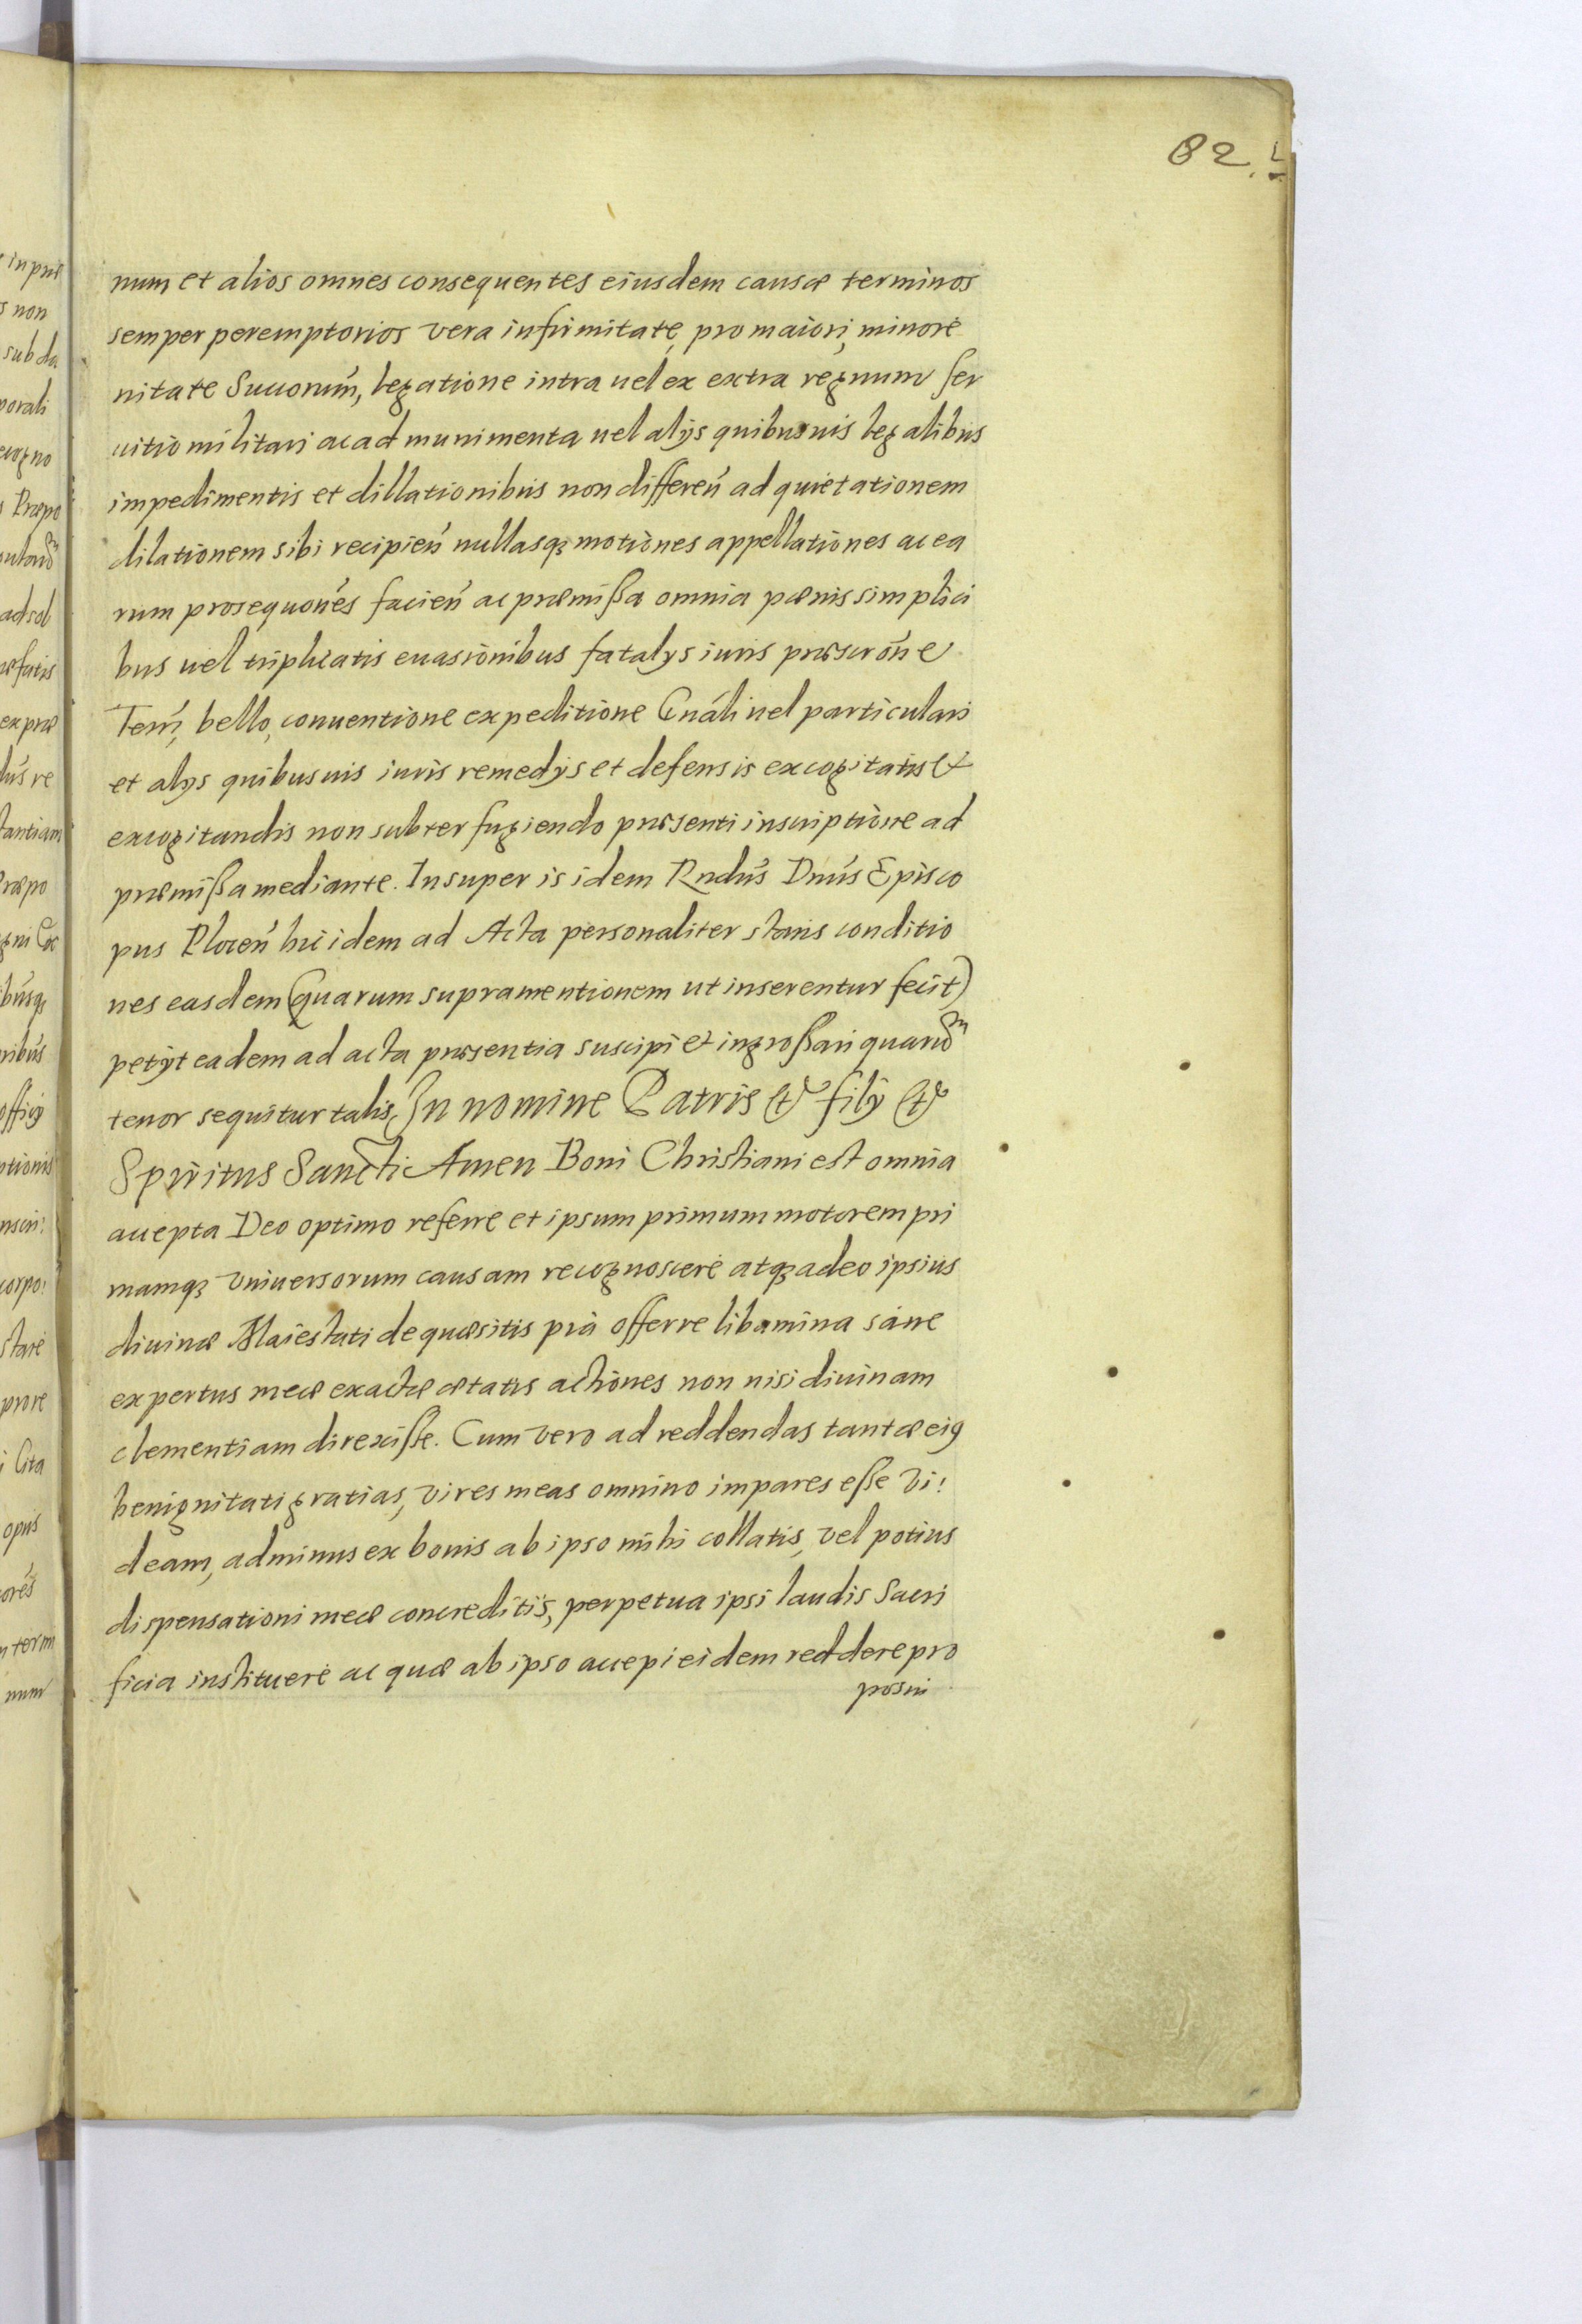 82.
num et alios omnes consequentes eiusdem causæ terminos
semper peremptorios vera infirmitate, pro maiori, minore
nitate Succorum̃, legatione intra uel ex extra regnum ser
uitio militari ac ad munimenta uel alijs quibusuis legalibus
impedimentis et dillationibus non differeñ ad quietationem
dilationem sibi recipieñ nullasq3 motiones appellationes ac ea
rum prosequoñes facieñ ac præmißa omnia pænis simplici
bus uel triplicatis euasionibus fatalys iuris præscroñe
Terr̃, bello, conuentione expeditione Gnáli uel particulari
et alys quibusuis iuris remedijs et defensis excogitatis et
excogitandis non subterfugiendo præsenti inscriptione ad
præmißa mediante. Insuper is idem Rndús Dnús Episco
pus Ploceñ hic idem ad Acta personaliter stans conditio
nes easdem (quarum supra mentionem ut inserentur fecit)
petijt eadem ad acta præsentia suscipi et ingroßari quarum
tenor sequitur talis, In nomine Patris et filij et
Spiritus Sancti Amen Boni Christiani est omnia
accepta Deo optimo referre et ipsum primum motorem pri
mamq3 vniuersorum causam recognoscere atq3 adeo ipsius
diuinæ Maiestati de quæsitis pia offerre libamina sane
expertus meæ exactæ ætatis actiones non nisi diuinam
clementiam direxiße. Cum vero ad reddendas tantæ ei9
benignitati gratias, vires meas omnino impares eße vi!
deam, ad minus ex bonis ab ipso mihi collatis, vel potius
dispensationi meæ concreditis, perpetua ipsi laudis Sacri
ficia instituere ac quæ ab ipso accepi eidem reddere pro
posui